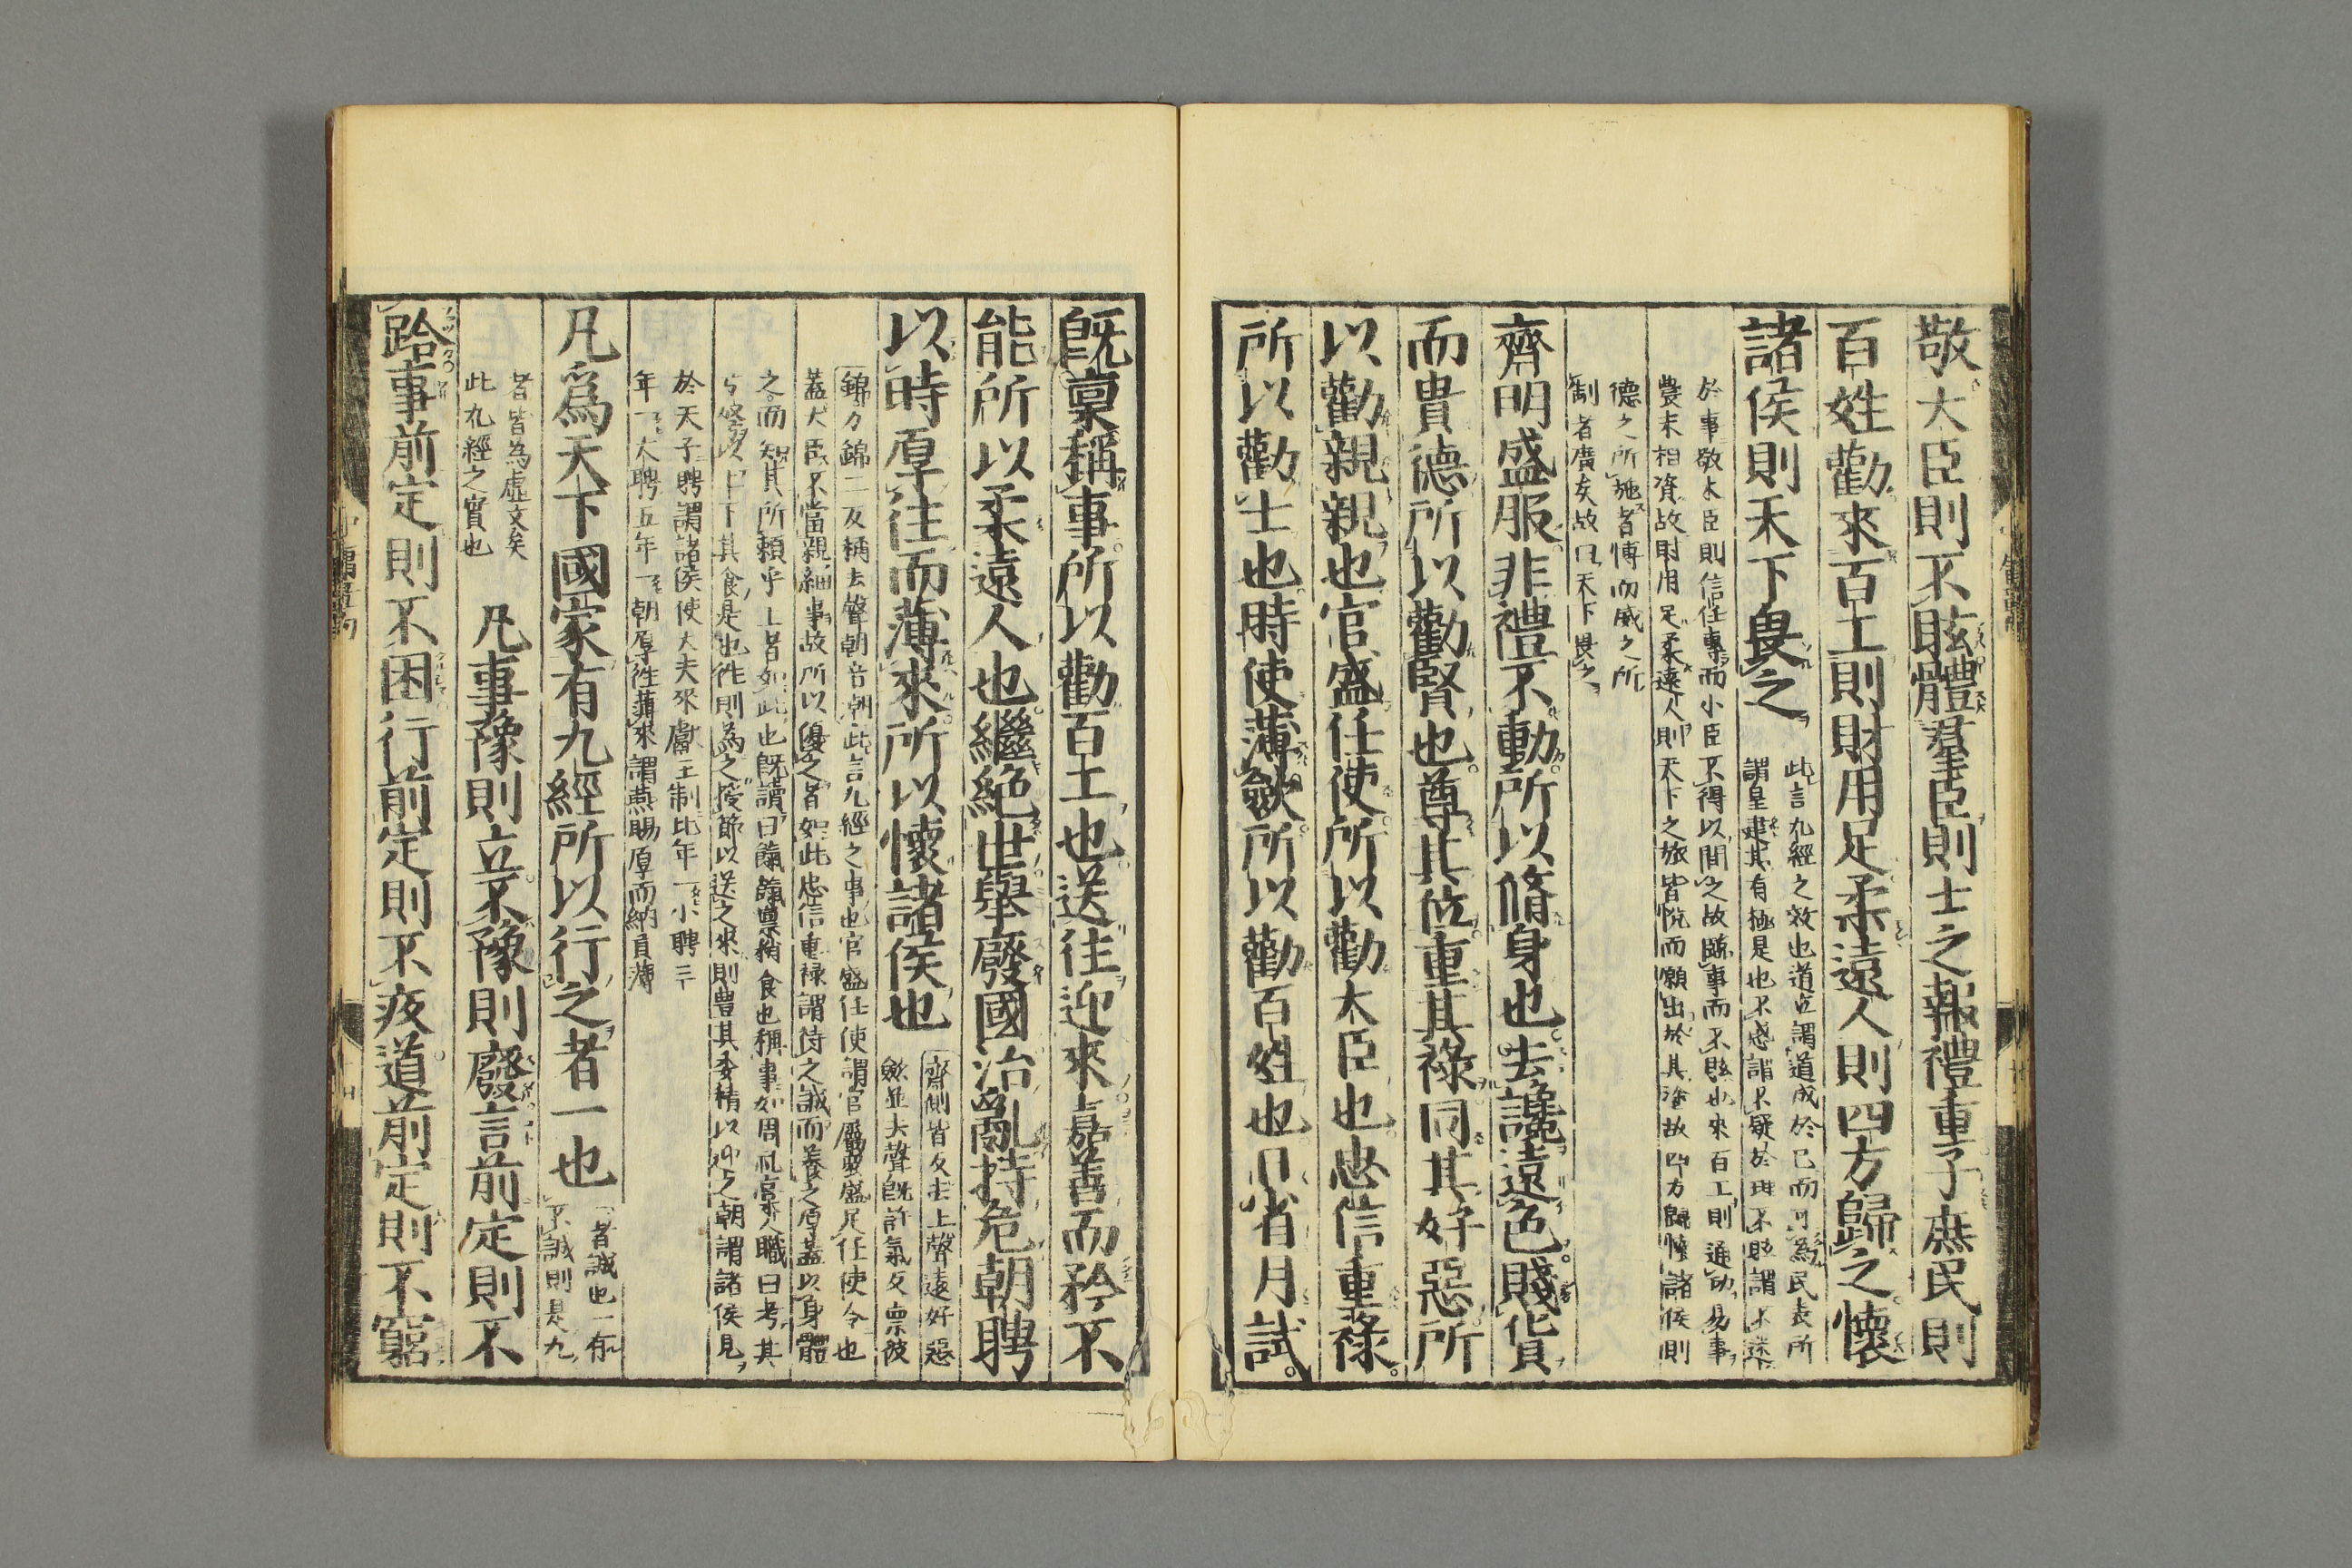 敬大臣則不眩體羣臣則士之報禮重子庶民則
百姓勸來百工則財用足柔遠人則四方歸之懷
諸侯則天下畏之
此言九經之效也道立謂道成於己而可為民表所
謂皇建其有極是也不惑謂不疑於理不眩謂不迷
於事敬大臣則信任專而小臣不得以間之故臨事而不眩也來百工則通功易事
農末相資故財用足柔遠人則天下之旅皆悅而願出於其塗故四方歸懷諸侯則
德之所施者博而威之所
制者廣矣故曰天下畏之
齊明盛服非禮不動所以脩身也去讒遠色賤貨
而貴德所以勸賢也尊其位重其祿同其好惡所
以勸親親也官盛任使所以勸大臣也忠信重祿
所以勸士也時使薄斂所以勸百姓也日省月試
既稟稱事所以勸百工也送往迎來嘉善而矜不
能所以柔遠人也繼絕世舉廢國治亂持危朝聘
以時厚往而薄來所以懷諸侯也
齊側皆反去上聲遠好惡
斂並去聲既許氣反稟彼
錦力錦二反稱去聲朝音朝此言九經之事也官盛任使謂官屬衆盛足任使令也
蓋大臣不當親細事故所以優之者如此忠信重祿謂待之誠而養之厚蓋以身體
之而知其所賴乎上者如此也既讀曰餼餼稟稍食也稱事如周礼稾人職曰考其
弓弩以上下其食是也往則為之授節以送之來則豊其委積以迎之朝謂諸侯見
於天子聘謂諸侯使大夫來獻王制比年一小聘三
年一大聘五年一朝厚往薄來謂燕賜厚而納貢薄
凡爲天下國家有九經所以行之者一也
一者誠也一有
不誠則是九
者皆為虛文矣
此九經之實也
凡事豫則立不豫則廢言前定則不
跲事前定則不困行前定則不疚道前定則不窮